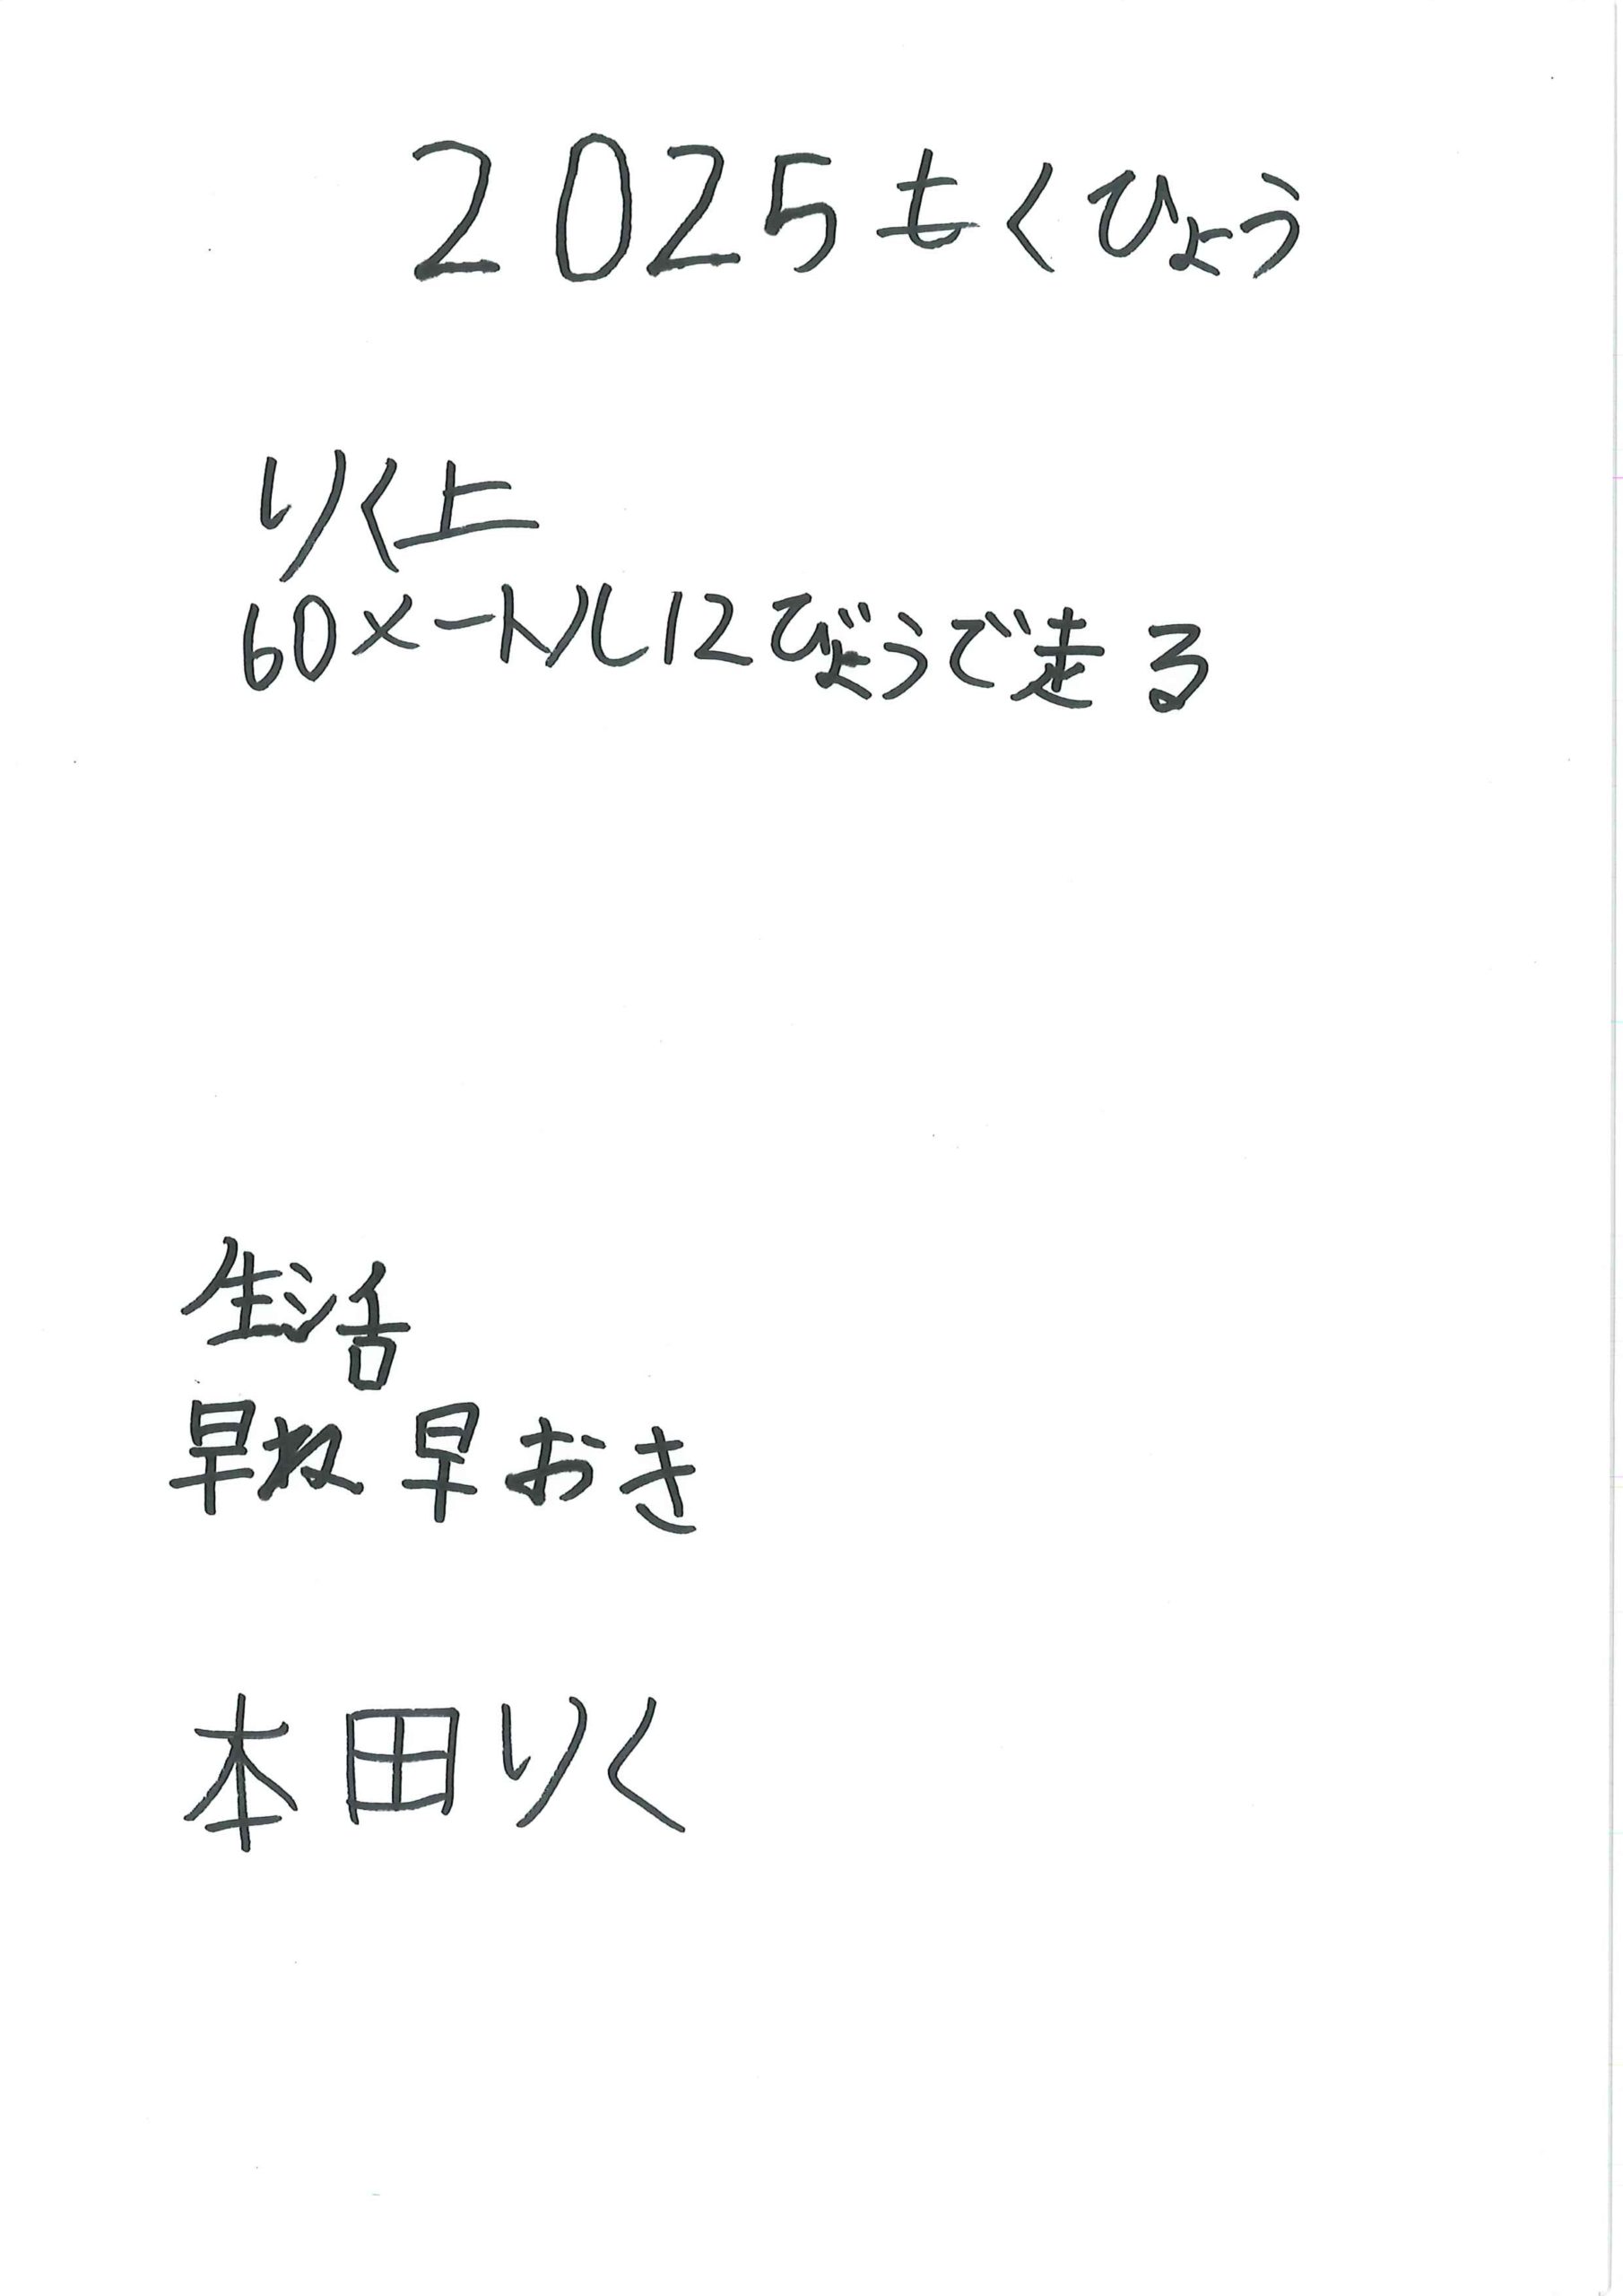 2025もくひょう
りく上
60メートル12びょうで走る
生活
早ね早おき
本田りく